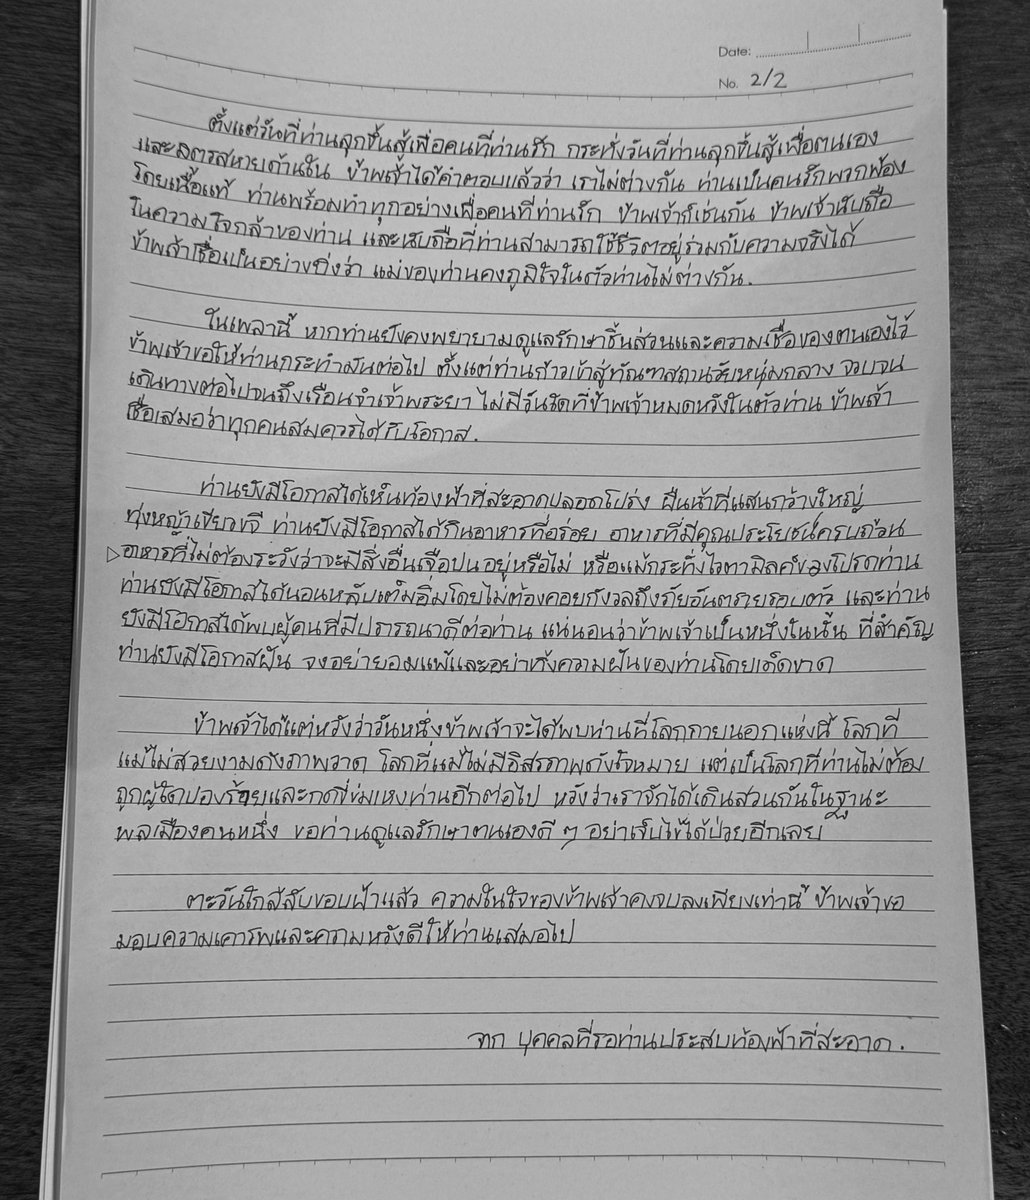 Date:
No. 2/2
ตั้งแต่วันที่ท่านลุกขึ้นสู้เพื่อคนที่ท่านรัก กระทั่งวันที่ท่านลุกขึ้นสู้เพื่อตนเอง
และสหายด้านใน ข้าพเจ้าได้คำตอบแล้วว่า เราไม่ต่างกัน ท่านเป็นคนรักพวกพ้อง
โดยเนื้อแท้ ท่านพร้อมทำทุกอย่างเพื่อคนที่ท่านรัก ข้าพเจ้าก็เช่นกัน ข้าพเจ้านับถือ
ในความใจกล้าของท่าน และนับถือที่ท่านสามารถใช้ชีวิตอยู่ร่วมกับความจริงได้
ข้าพเจ้าเชื่อเป็นอย่างยิ่งว่า แม่ของท่านคงภูมิใจในตัวท่านไม่ต่างกัน.
ในเพลานี้ หากท่านยังคงพยายามดูแลรักษาชิ้นส่วนและความเชื่อของตนเองไว้
ข้าพเจ้าขอให้ท่านกระทำมันต่อไป ตั้งแต่ท่านก้าวเข้าสู่ทัณฑสถานวัยหนุ่มกลาง จวบจน
เดินทางต่อไปจนถึงเรือนจำเจ้าพระยา ไม่มีวันใดที่ข้าพเจ้าหมดหวังในตัวท่าน ข้าพเจ้า
เชื่อเสมอว่าทุกคนสมควรได้รับโอกาส.
ท่านยังมีโอกาสได้เห็นท้องฟ้าที่สะอาดปลอดโปร่ง ผืนน้ำที่แสนกว้างใหญ่
ทุ่งหญ้าเขียวขจี ท่านยังมีโอกาสได้กินอาหารที่อร่อย อาหารที่มีคุณประโยชน์ครบถ้วน
อาหารที่ไม่ต้องระวังว่าจะมีสิ่งอื่นเจือปนอยู่หรือไม่ หรือแม้กระทั่งไวตามิลค์ของโปรดท่าน
ท่านยังมีโอกาสได้นอนหลับเต็มอิ่มโดยไม่ต้องคอยกังวลถึงภัยอันตรายรอบตัว และท่าน
ยังมีโอกาสได้พบผู้คนที่มีปรารถนาดีต่อท่าน แน่นอนว่าข้าพเจ้าเป็นหนึ่งในนั้น ที่สำคัญ
ท่านยังมีโอกาสฝัน จงอย่ายอมแพ้และอย่าทิ้งความฝันของท่านโดยเด็ดขาด
ข้าพเจ้าได้แต่หวังว่าวันหนึ่งข้าพเจ้าจะได้พบท่านที่โลกภายนอกแห่งนี้ โลกที่
แม้ไม่สวยงามดังภาพวาด โลกที่แม้ไม่มีอิสรภาพดังใจหมาย แต่เป็นโลกที่ท่านไม่ต้อง
ถูกผู้ใดปองร้ายและกดขี่ข่มเหงท่านอีกต่อไป หวังว่าเราจักได้เดินสวนกันในฐานะ
พลเมืองคนหนึ่ง ขอท่านดูแลรักษาตนเองดี ๆ อย่าเจ็บไข้ได้ป่วยอีกเลย
ตะวันใกล้ลับขอบฟ้าแล้ว ความในใจของข้าพเจ้าคงจบลงเพียงเท่านี้ ข้าพเจ้าขอ
มอบความเคารพและความหวังดีให้ท่านเสมอไป
จาก บุคคลที่รอท่านประสบท้องฟ้าที่สะอาด.